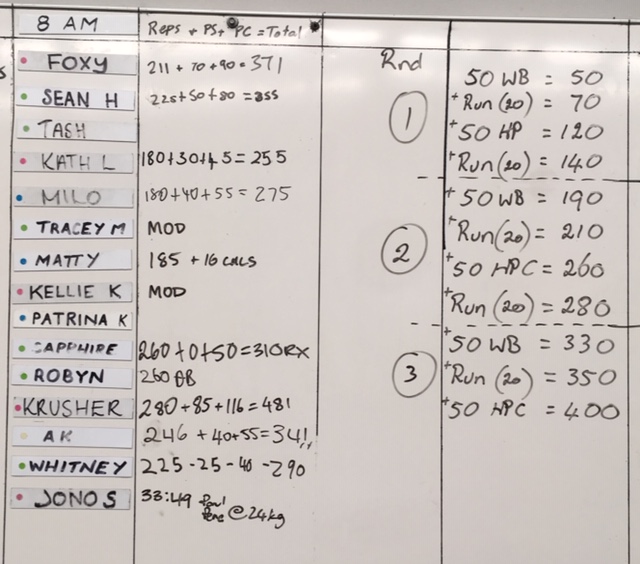 8 AM Reps + PS + PC = Total
FOXY 211 + 70 + 90 = 371
SEAN H 225 + 50 + 80 = 355
TASH
KATH L 180 + 30 + 45 = 255
MILO 180 + 40 + 55 = 275
TRACEY M MOD
MATTY 185 + 16 CALS
KELLIE K MOD
PATRINA K
SAPPHIRE 260 + 0 + 50 = 310 RX
ROBYN 260
KRUSHER 280 + 85 + 116 = 481
AK 246 + 40 + 55 = 341
WHITNEY 225 - 25 - 40 - 290
JONO S 33:49
@ 24kg
Rnd
1
50 WB = 50
+ Run (20) = 70
+ 50 HP = 120
+ Run (20) = 140
2
+ 50 WB = 190
+ Run (20) = 210
+ 50 HPC = 260
+ Run (20) = 280
3
+ 50 WB = 330
+ Run (20) = 350
+ 50 HPC = 400